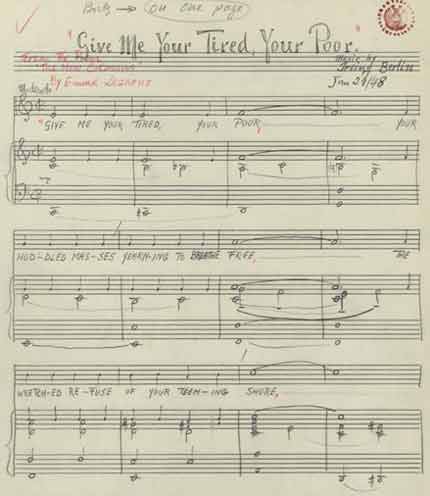 on one page
"Give Me Your Tired, Your Poor."
From The Poem
"The New Colossus"
By Emma Lazarus
Music by
Irving Berlin
Jan 21/48
Moderato
"GIVE ME YOUR TIRED, YOUR POOR, YOUR
HUD-DLED MAS-SES YEARN-ING TO BREATHE FREE, THE
WRETCH-ED RE-FUSE OF YOUR TEEM-ING SHORE,